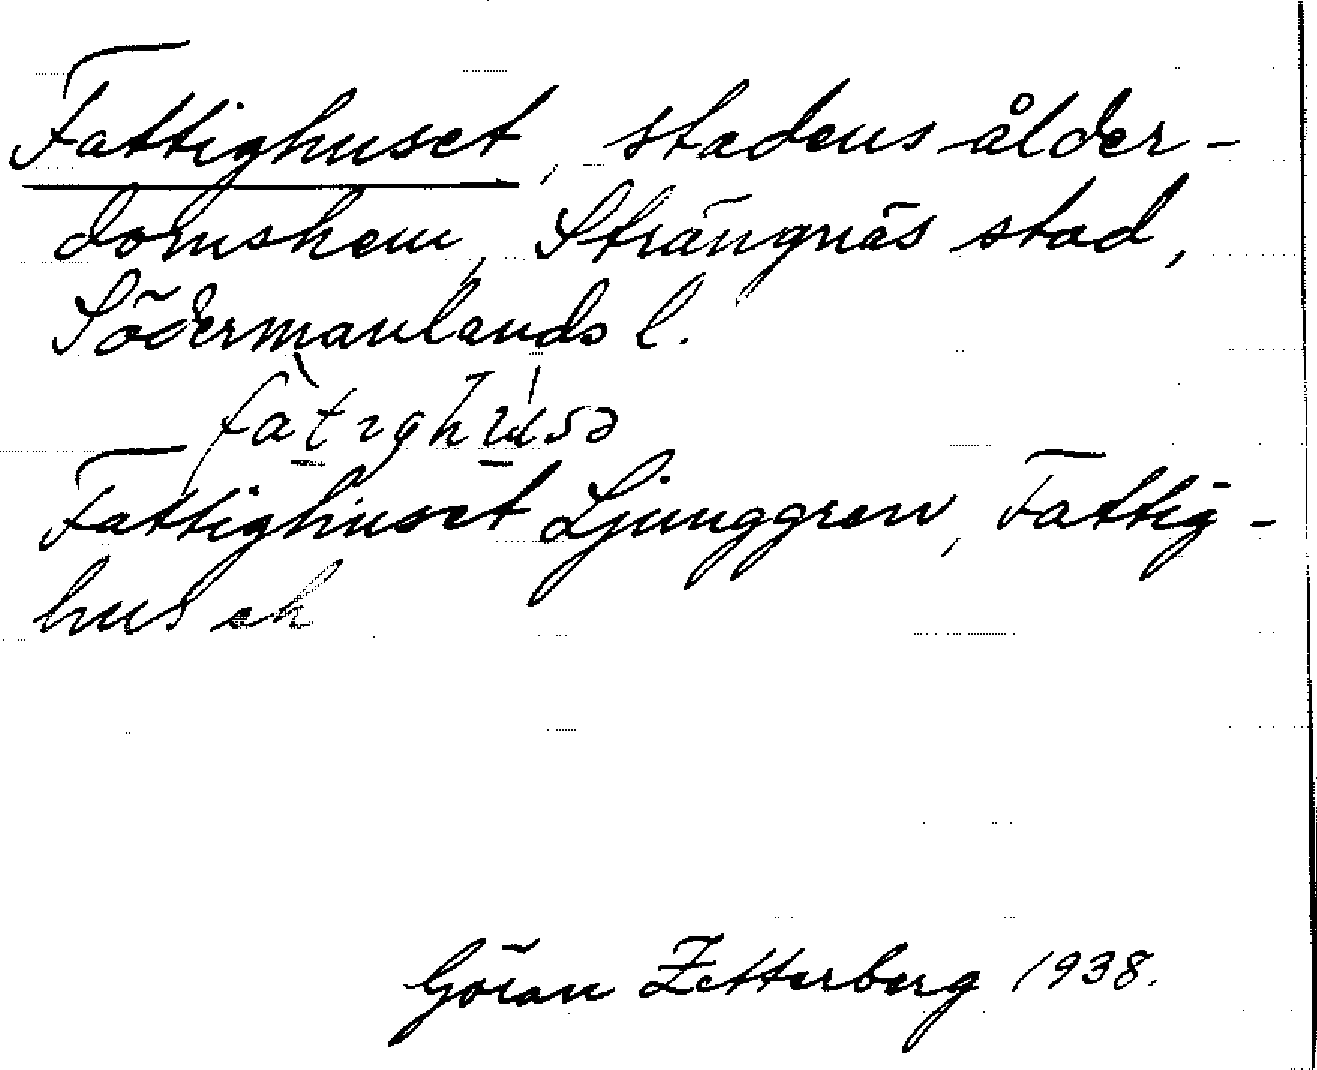 Fattighuset, stadens ålder-
domshem, Strängnäs stad,
Södermanlands l.
fàtıghúsə
Fattighuset Ljunggren, Fattig-
hus ek
Göran Zetterberg 1938.